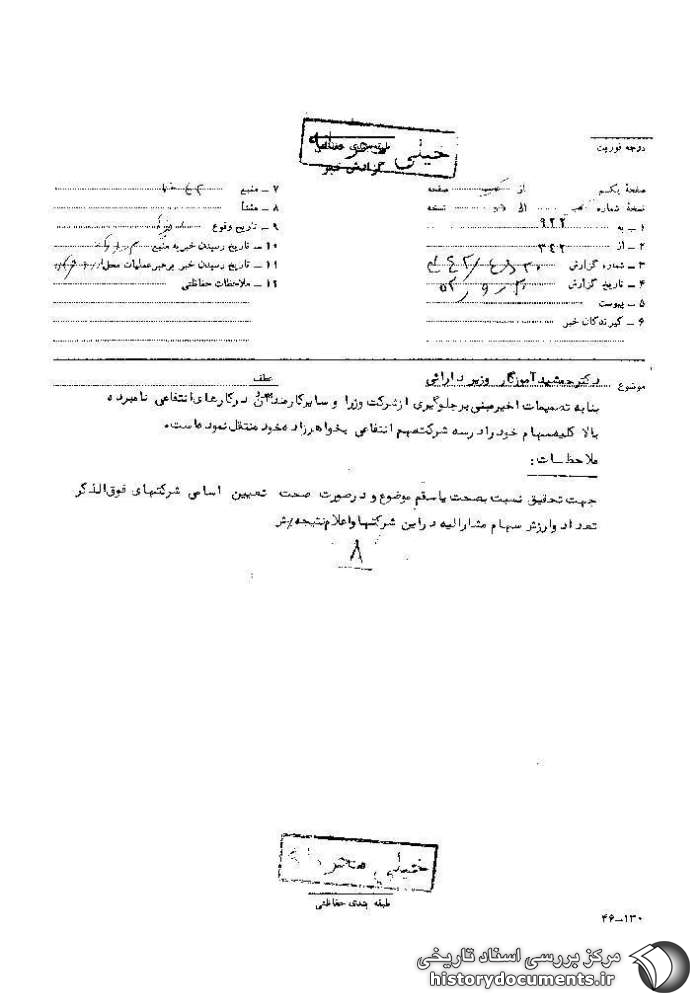 خیلی محرمانه
طبقه‌بندی حفاظتی
گزارش خبر
درجه فوریت
صفحهٔ یکم از یک صفحه
نسخهٔ شماره یک الی دو نسخه
۱ ـ به ۹۲۲
۲ ـ از ۳۴۲
۳ ـ شماره گزارش
۴ ـ تاریخ گزارش ۵۲
۵ ـ پیوست
۶ ـ گیرندگان خبر
۷ ـ منبع
۸ ـ منشأ
۹ ـ تاریخ وقوع
۱۰ ـ تاریخ رسیدن خبر به منبع
۱۱ ـ تاریخ رسیدن خبر برهبر عملیات محل
۱۲ ـ ملاحظات حفاظتی
موضوع دکتر جمشید آموزگار وزیر دارائی
عطف
بنا به تصمیمات اخیر مبنی بر جلوگیری از شرکت وزرا و سایر کارمندان در کارهای انتفاعی نامبرده
بالا کلیه سهام خود را در سه شرکت مهم انتفاعی بخواهرزاده خود منتقل نموده است.
ملاحظـات :
جهت تحقیق نسبت بصحت یا سقم موضوع و در صورت صحت تعیین اسامی شرکتهای فوق‌الذکر
تعداد و ارزش سهام مشارالیه در این شرکتها و اعلام نتیجه
۸
خیلی محرمانه
طبقه بندی حفاظتی
۱۳۰ـ۴۶
مرکز بررسی اسناد تاریخی
historydocuments.ir